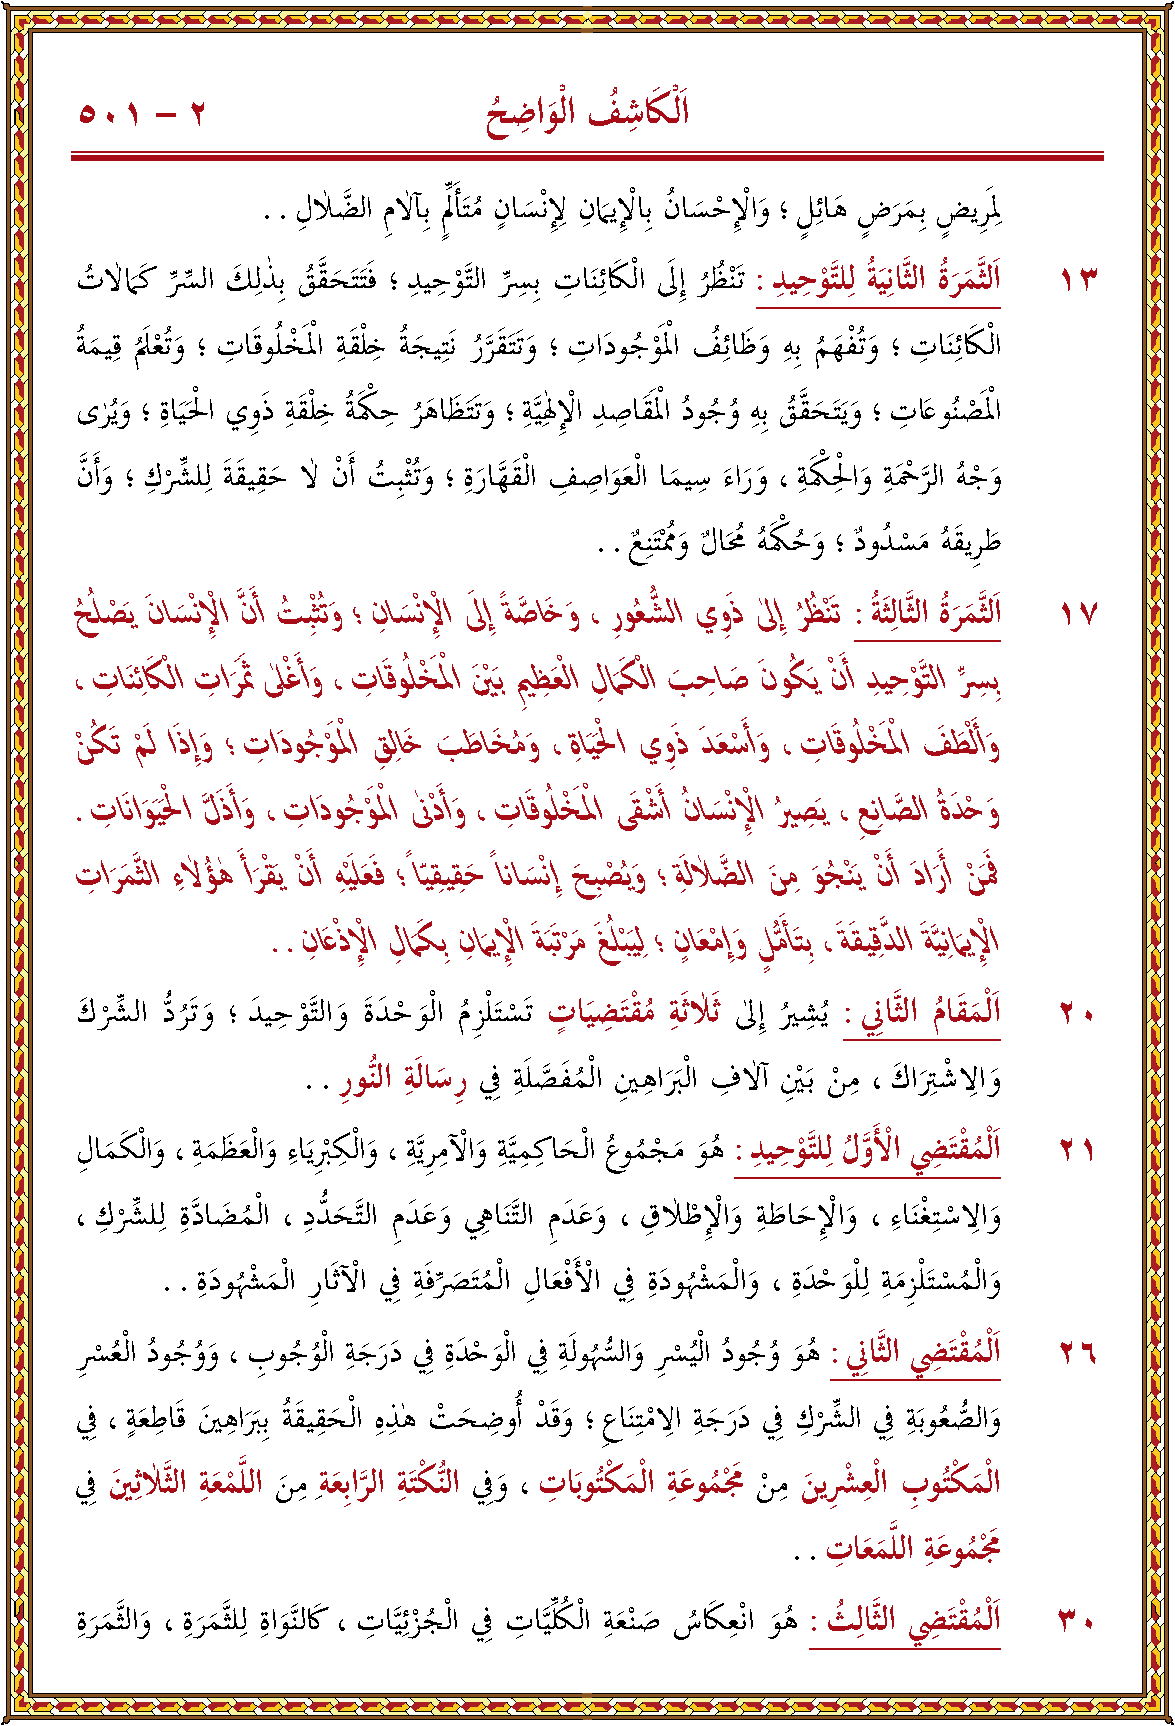 اَلْكَاشِفُ الْوَاضِحُ ٢ – ٥٠١
لِمَرِيضٍ بِمَرَضٍ هَائِلٍ ؛ وَالْإِحْسَانُ بِالْإِيمَانِ لِإِنْسَانٍ مُتَأَلِّمٍ بِآلَامِ الضَّلَالِ . .
١٣ اَلثَّمَرَةُ الثَّانِيَةُ لِلتَّوْحِيدِ : تَنْظُرُ إِلَى الْكَائِنَاتِ بِسِرِّ التَّوْحِيدِ ؛ فَتَتَحَقَّقُ بِذٰلِكَ السِّرِّ كَمَالَاتُ
الْكَائِنَاتِ ؛ وَتُفْهَمُ بِهِ وَظَائِفُ الْمَوْجُودَاتِ ؛ وَتَتَقَرَّرُ نَتِيجَةُ خِلْقَةِ الْمَخْلُوقَاتِ ؛ وَتُعْلَمُ قِيمَةُ
الْمَصْنُوعَاتِ ؛ وَيَتَحَقَّقُ بِهِ وُجُودُ الْمَقَاصِدِ الْإِلٰهِيَّةِ ؛ وَتَتَظَاهَرُ حِكْمَةُ خِلْقَةِ ذَوِي الْحَيَاةِ ؛ وَيُرٰى
وَجْهُ الرَّحْمَةِ وَالْحِكْمَةِ ، وَرَاءَ سِيمَا الْعَوَاصِفِ الْقَهَّارَةِ ؛ وَتُثْبِتُ أَنْ لَا حَقِيقَةَ لِلشِّرْكِ ؛ وَأَنَّ
طَرِيقَهُ مَسْدُودٌ ؛ وَحُكْمَهُ مُحَالٌ وَمُمْتَنِعٌ . .
١٧ اَلثَّمَرَةُ الثَّالِثَةُ : تَنْظُرُ إِلَى ذَوِي الشُّعُورِ ، وَخَاصَّةً إِلَى الْإِنْسَانِ ؛ وَتُثْبِتُ أَنَّ الْإِنْسَانَ يَصْلُحُ
بِسِرِّ التَّوْحِيدِ أَنْ يَكُونَ صَاحِبَ الْكَمَالِ الْعَظِيمِ بَيْنَ الْمَخْلُوقَاتِ ، وَأَغْلَى ثَمَرَاتِ الْكَائِنَاتِ ،
وَأَلْطَفَ الْمَخْلُوقَاتِ ، وَأَسْعَدَ ذَوِي الْحَيَاةِ ، وَمُخَاطَبَ خَالِقِ الْمَوْجُودَاتِ ؛ وَإِذَا لَمْ تَكُنْ
وَحْدَةُ الصَّانِعِ ، يَصِيرُ الْإِنْسَانُ أَشْقَى الْمَخْلُوقَاتِ ، وَأَدْنَى الْمَوْجُودَاتِ ، وَأَذَلَّ الْحَيَوَانَاتِ .
فَمَنْ أَرَادَ أَنْ يَنْجُوَ مِنَ الضَّلَالَةِ ؛ وَيُصْبِحَ إِنْسَاناً حَقِيقِيّاً ؛ فَعَلَيْهِ أَنْ يَقْرَأَ هٰؤُلَاءِ الثَّمَرَاتِ
الْإِيمَانِيَّةَ الدَّقِيقَةَ ، بِتَأَمُّلٍ وَإِمْعَانٍ ؛ لِيَبْلُغَ مَرْتَبَةَ الْإِيمَانِ بِكَمَالِ الْإِذْعَانِ . .
٢٠ اَلْمَقَامُ الثَّانِي : يُشِيرُ إِلَى ثَلَاثَةِ مُقْتَضِيَاتٍ تَسْتَلْزِمُ الْوَحْدَةَ وَالتَّوْحِيدَ ؛ وَتَرُدُّ الشِّرْكَ
وَالِاشْتِرَاكَ ، مِنْ بَيْنِ آلَافِ الْبَرَاهِينِ الْمُفَصَّلَةِ فِي رِسَالَةِ النُّورِ . .
٢١ اَلْمُقْتَضِي الْأَوَّلُ لِلتَّوْحِيدِ : هُوَ مَجْمُوعُ الْحَاكِمِيَّةِ وَالْآمِرِيَّةِ ، وَالْكِبْرِيَاءِ وَالْعَظَمَةِ ، وَالْكَمَالِ
وَالِاسْتِغْنَاءِ ، وَالْإِحَاطَةِ وَالْإِطْلَاقِ ، وَعَدَمِ التَّنَاهِي وَعَدَمِ التَّحَدُّدِ ، الْمُضَادَّةِ لِلشِّرْكِ ،
وَالْمُسْتَلْزِمَةِ لِلْوَحْدَةِ ، وَالْمَشْهُودَةِ فِي الْأَفْعَالِ الْمُتَصَرِّفَةِ فِي الْآثَارِ الْمَشْهُودَةِ . .
٢٦ اَلْمُقْتَضِي الثَّانِي : هُوَ وُجُودُ الْيُسْرِ وَالسُّهُولَةِ فِي الْوَحْدَةِ فِي دَرَجَةِ الْوُجُوبِ ، وَوُجُودُ الْعُسْرِ
وَالصُّعُوبَةِ فِي الشِّرْكِ فِي دَرَجَةِ الِامْتِنَاعِ ؛ وَقَدْ أُوضِحَتْ هٰذِهِ الْحَقِيقَةُ بِبَرَاهِينَ قَاطِعَةٍ ، فِي
الْمَكْتُوبِ الْعِشْرِينَ مِنْ مَجْمُوعَةِ الْمَكْتُوبَاتِ ، وَفِي النُّكْتَةِ الرَّابِعَةِ مِنَ اللَّمْعَةِ الثَّلَاثِينَ فِي
مَجْمُوعَةِ اللَّمَعَاتِ . .
٣٠ اَلْمُقْتَضِي الثَّالِثُ : هُوَ انْعِكَاسُ صَنْعَةِ الْكُلِّيَّاتِ فِي الْجُزْئِيَّاتِ ، كَالنَّوَاةِ لِلثَّمَرَةِ ، وَالثَّمَرَةِ